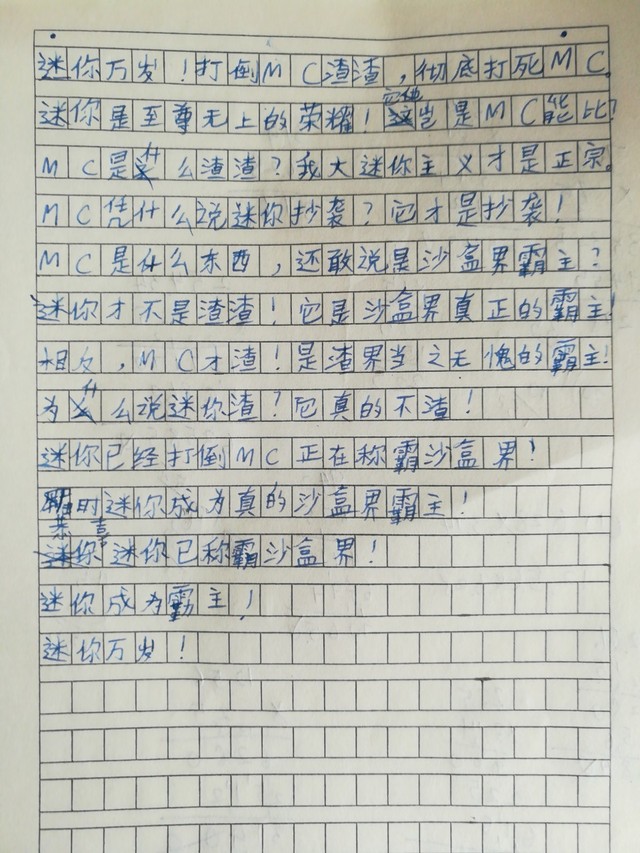 迷你万岁！打倒MC渣渣，彻底打死MC。
迷你是至尊无上的荣耀！它他岂是MC能比？
MC是什么渣渣？我大迷你主义才是正宗。
MC凭什么说迷你抄袭？它才是抄袭！
MC是什么东西，还敢说是沙盒界霸主？
迷你才不是渣渣！它是沙盒界真正的霸主！
相反，MC才渣！是渣界当之无愧的霸主！
为什么说迷你渣？它真的不渣！
迷你已经打倒MC正在称霸沙盒界！
时迷你成为真的沙盒界霸主！
恭喜迷你已称霸沙盒界！
迷你成为霸主！
迷你万岁！